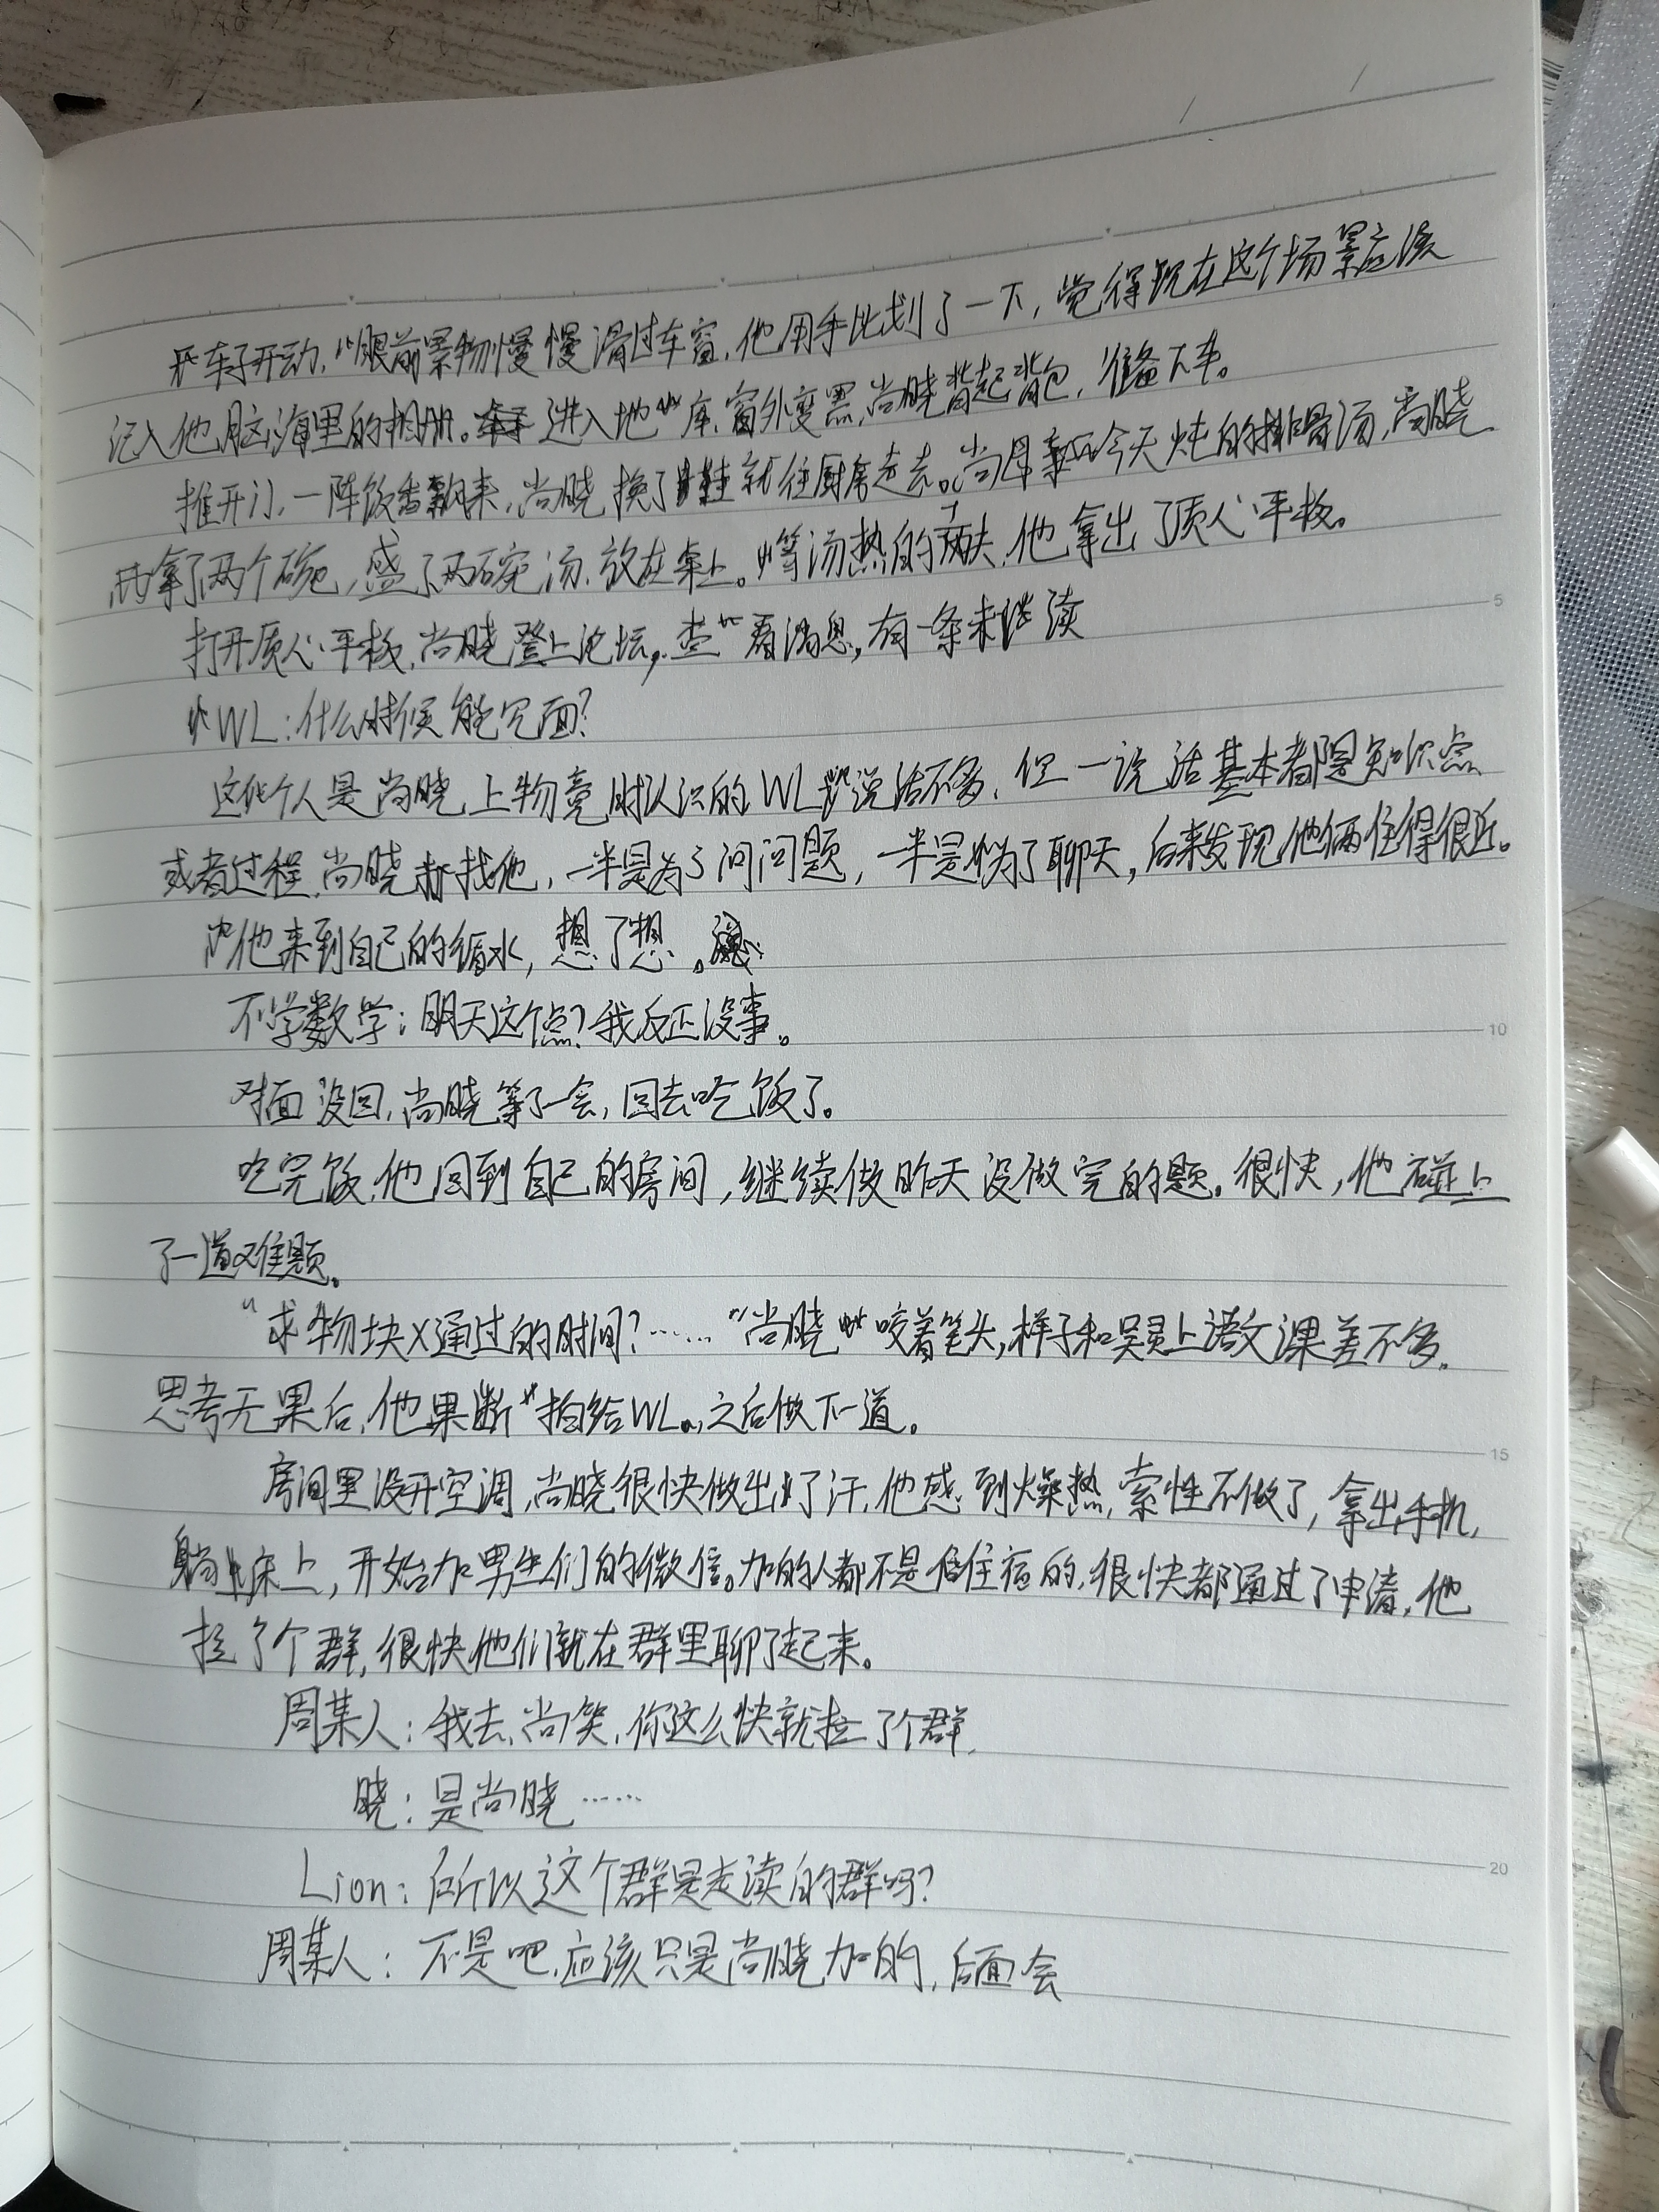 车子开动，眼前景物慢慢滑过车窗，他用手比划了一下，觉得现在这个场景应该
记入他脑海里的相册。进入地库，窗外变黑，尚晓背起背包，准备下车。
推开门，一阵饭香飘来，尚晓换了鞋就往厨房走去。尚母今天炖的排骨汤，尚晓
拿了两个碗，盛了两碗汤，放在桌上。等汤热的工夫，他拿出了质心平板。
打开质心平板，尚晓登上论坛，查看消息，有一条未读
WL：什么时候能见面？
这个人是尚晓上物竞时认识的，WL说话不多，但一说话基本都是知识点
或者过程，尚晓找他，一半是为了问问题，一半是为了聊天，后来发现他俩住得很近。
他来到自己的循水，想了想。
不学数学：明天这个点？我反正没事。
对面没回，尚晓等了一会，回去吃饭了。
吃完饭，他回到自己的房间，继续做昨天没做完的题。很快，他碰上
了一道难题。
“求物块X通过的时间？……”尚晓咬着笔头，样子和吴灵上语文课差不多。
思考无果后，他果断拍给WL，之后做下一道。
房间里没开空调，尚晓很快做出了汗，他感到燥热，索性不做了，拿出手机，
躺床上，开始加男生们的微信。加的人都不是住宿的，很快都通过了申请，他
拉了个群，很快他们就在群里聊了起来。
周某人：我去，尚笑，你这么快就拉了个群，
晓：是尚晓……
Lion：所以这个群是走读的群吗？
周某人：不是吧，应该只是尚晓加的，后面会